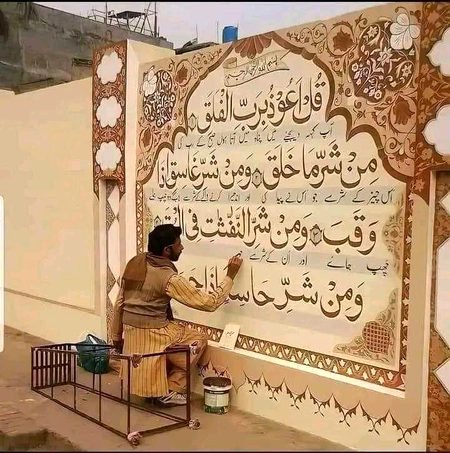 بسم الله الرحمن الرحيم
قُلْ اَعُوْذُ بِرَبِّ الْفَلَقِ
آپ کہہ دیجئے میں پناہ میں آتا ہوں صبح کے رب کی
مِنْ شَرِّ مَا خَلَقَ وَمِنْ شَرِّ غَاسِقٍ اِذَا
چیز کے شر سے جو اس نے پیدا کی اور اندھیرا کے شر سے جب وہ
وَقَبَ وَمِنْ شَرِّ النَّفّٰثٰتِ فِی
چھپ جائے اور ان کے شر سے
وَمِنْ شَرِّ حَاسِدٍ اِذَا